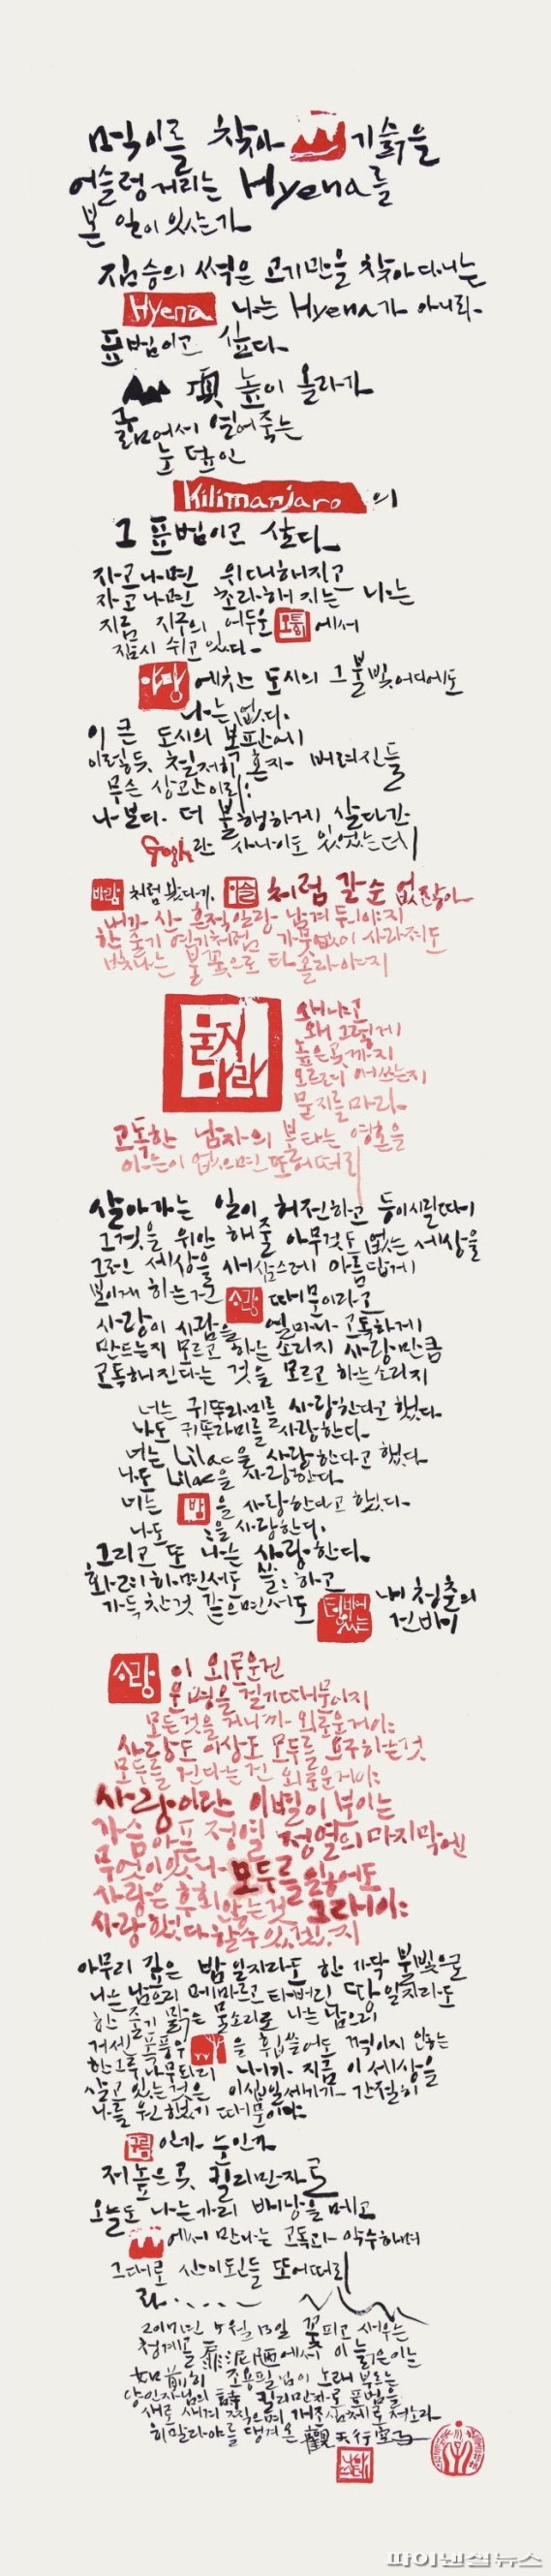 먹이를 찾아 山기슭을
어슬렁거리는 Hyena를
본 일이 있는가
짐승의 썩은 고기만을 찾아다니는
Hyena 나는 Hyena가 아니라
표범이고 싶다
山頂 높이 올라가
굶어서 얼어죽는
눈 덮인
Kilimanjaro의
그 표범이고 싶다
자고나면 위대해지고
자고나면 초라해 지는 나는
지금 지구의 어두운 모퉁이에서
잠시 쉬고 있다
야망에 찬 도시의 그 불빛 어디에도
나는 없다.
이 큰 도시의 복판에
이렇듯 철저히 혼자 버려진들
무슨 상관이랴!
나보다 더 불행하게 살다간
Gogh란 사나이도 있었는데
바람처럼 왔다가 이슬처럼 갈 순 없잖아
내가 산 흔적일랑 남겨둬야지
한줄기 연기처럼 가뭇없이 사라져도
빛나는 불꽃으로 타올라야지
묻지
마라
왜냐고
왜 그렇게
높은곳까지
오르려 애쓰는지
묻지를 마라
고독한 남자의 불타는 영혼을
아는이 없으면 또 어떠리
살아가는 일이 허전하고 등이 시릴때
그것을 위안 해줄 아무것도 없는 세상을
그런 세상을 새삼스레 아름답게
보이게 하는건 사랑 때문이라고
사랑이 사람을 얼마나 고독하게
만드는지 모르고 하는소리지 사랑만큼
고독해진다는 것을 모르고 하는소리지
너는 귀뚜라미를 사랑한다고 했다
나도 귀뚜라미를 사랑한다
너는 Lilac을 사랑한다고 했다
나도 Lilac을 사랑한다
너는 밤을 사랑한다고 했다
나도 을 사랑한다.
그리고 또 나는 사랑한다.
화려하면서도 쓸:하고
가득찬것 같으면서도 텅비어있는 내 청춘의
건배
사랑이 외로운건
운명을 걸기때문이지
모든것을 거니까 외로운거야
사랑도 이상도 모두를 요구하는것
모두를 건다는건 외로운거야
사랑이란 이별이 보이는
가슴아픈 정열 정열의 마지막엔
무엇이있나 모두를 잃어도
사랑은 후회않는것 그래야
사랑했다 할수있겠지
아무리 깊은 밤일지라도 한가닥 불빛으로
나는 남으리 메마르고 타버린 땅일지라도
한줄기 맑은 물소리로 나는 남으리
거센 폭풍우 을 휩쓸어도 꺽이지 않는
한그루 나무되리 내가 지금 이 세상을
살고 있는것은 이십일세기가 간절히
나를 원했기 때문이야
구름인가 눈인가
저 높은곳 킬리만자로
오늘도 나는가리 배낭을 메고
山에서 만나는 고독과 악수하며
그대로 산이된들 또어떠리
라.....
2017년 5월 13일 꽃피고 새우는
청계골 에서 이 늙은이는
조용필님이 노래 부르는
양인자님의 詩 킬리만자로 표범을
히말라야를 댕겨온 觀天行
파이낸셜뉴스